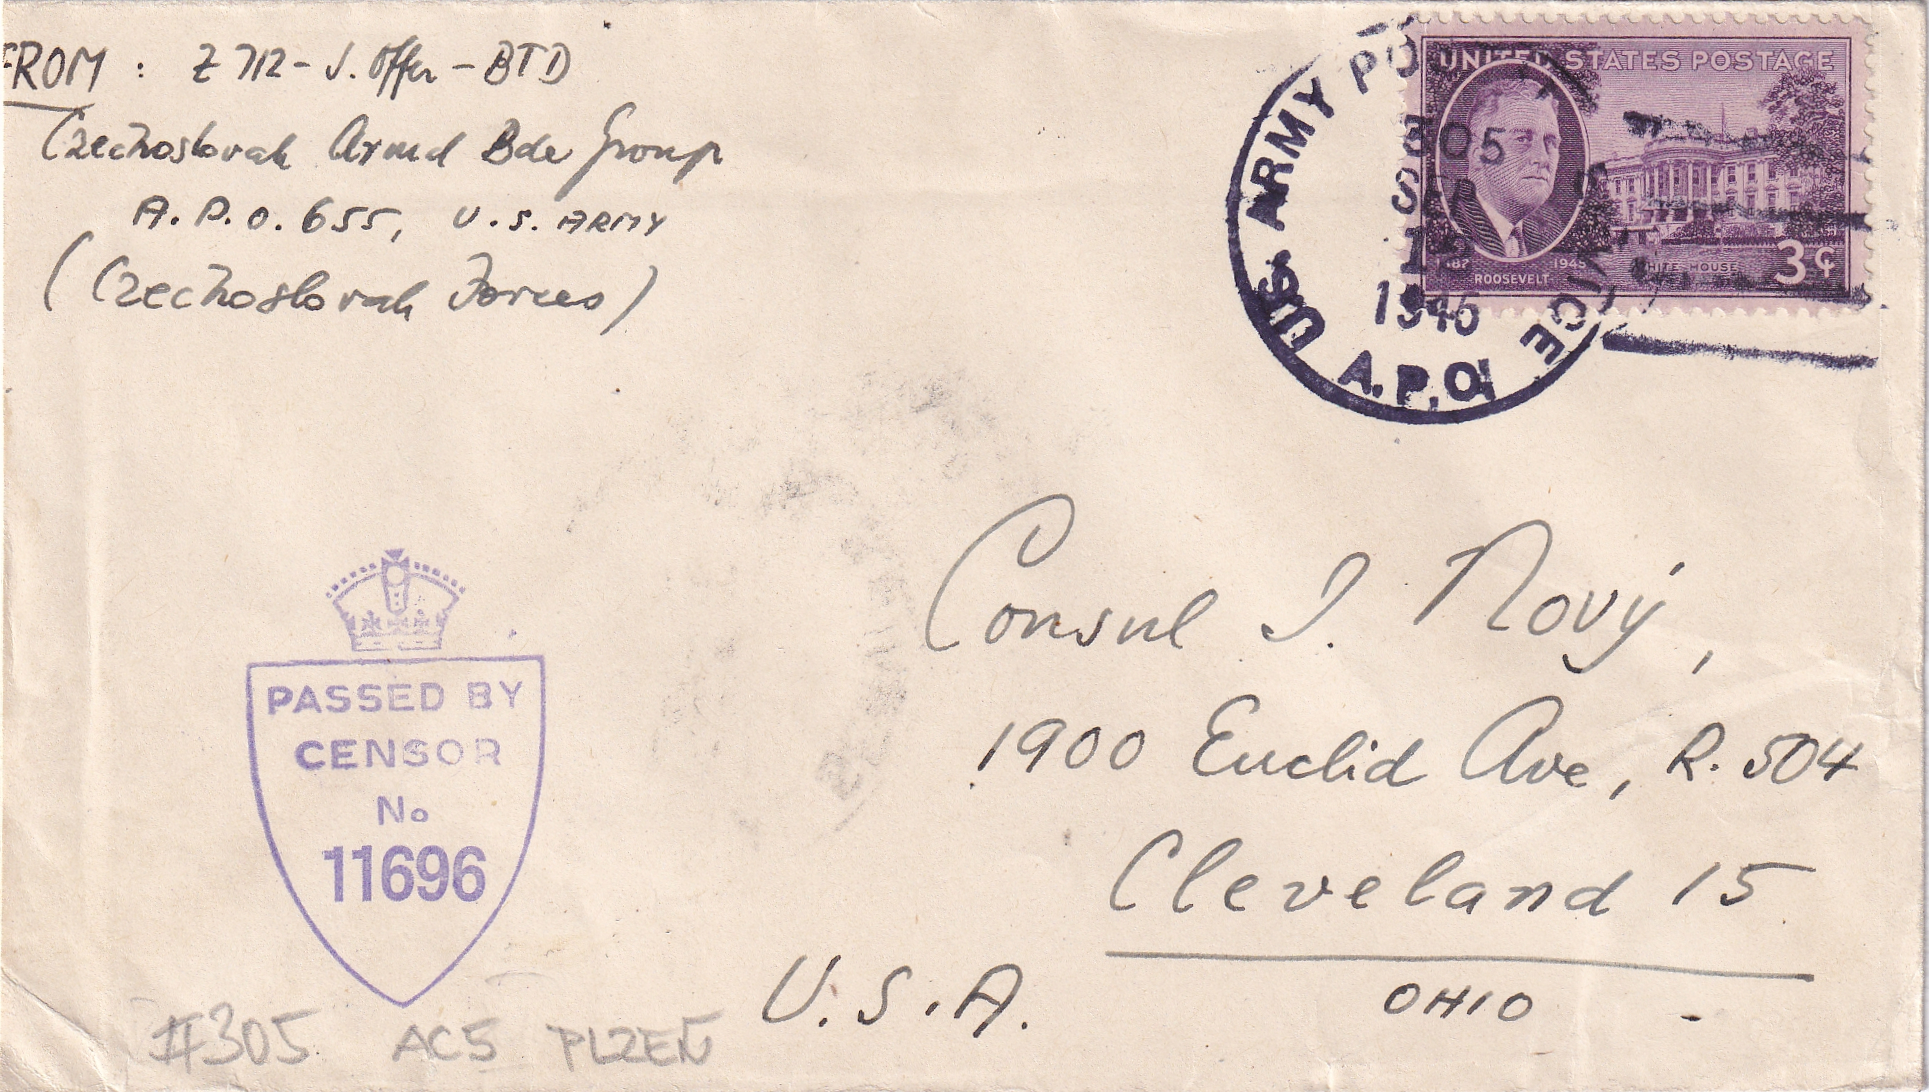 FROM : Z 712 - J. Offer - BTD
Czechoslovak Armd Bde Group
A.P.O. 655, U.S. ARMY
(Czechoslovak Forces)
U.S. ARMY POSTAL SERVICE
305
SEP
12
1945
A.P.O.
UNITED STATES POSTAGE
1945
ROOSEVELT
WHITE HOUSE
3¢
PASSED BY
CENSOR
No
11696
Consul I. Nový,
1900 Euclid Ave, R. 504
Cleveland 15
OHIO
U.S.A.
#305 AC5 PLZEŇ